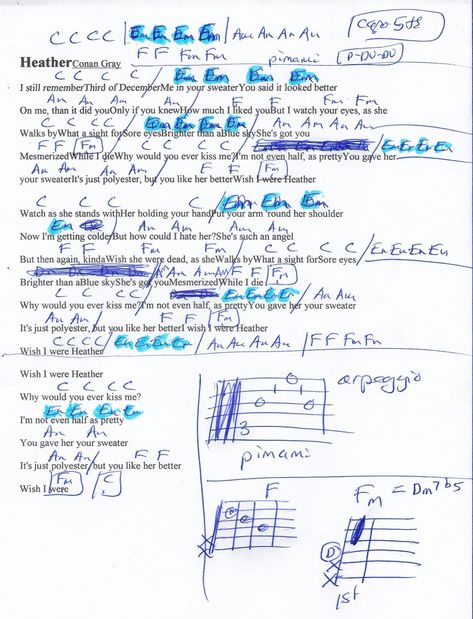 C C C C / Em Em Em Em / Am Am Am Am
Capo 5th
F F Fm Fm
pimami
P-DU-DU
HeatherConan Gray
C C C C / Em Em Em Em
I still rememberThird of DecemberMe in your sweaterYou said it looked better
Am Am Am Am / F F Fm Fm
On me, than it did youOnly if you knewHow much I liked youBut I watch your eyes, as she
C C C C / Em Em Em Em / Am Am Am Am
Walks byWhat a sight forSore eyesBrighter than aBlue skyShe's got you
F F / Fm / Em Em Em Em
MesmerizedWhile I dieWhy would you ever kiss me?I'm not even half, as prettyYou gave her
Am Am Am Am / F F / Fm
your sweaterIt's just polyester, but you like her betterWish I were Heather
C C C C / Em Em Em
Watch as she stands withHer holding your handPut your arm 'round her shoulder
Em Am Am Am Am
Now I'm getting colderBut how could I hate her?She's such an angel
F F Fm Fm C C C C / Em Em Em Em
But then again, kindaWish she were dead, as sheWalks byWhat a sight forSore eyes
Am Am Am Am / F F / Fm
Brighter than aBlue skyShe's got youMesmerizedWhile I die
C C C C / Em Em Em Em / Am Am
Why would you ever kiss me?I'm not even half, as prettyYou gave her your sweater
Am Am / F F / Fm
It's just polyester, but you like her betterI wish I were Heather
C C C C / Em Em Em Em / Am Am Am Am / F F Fm Fm
Wish I were Heather
Wish I were Heather
C C C C
Why would you ever kiss me?
Em Em Em Em
I'm not even half as pretty
Am Am
You gave her your sweater
Am Am / F F
It's just polyester, but you like her better
Fm / C
Wish I were
arpeggio
3
pimami
F
Fm = Dm7b5
D
X
X
X
1st